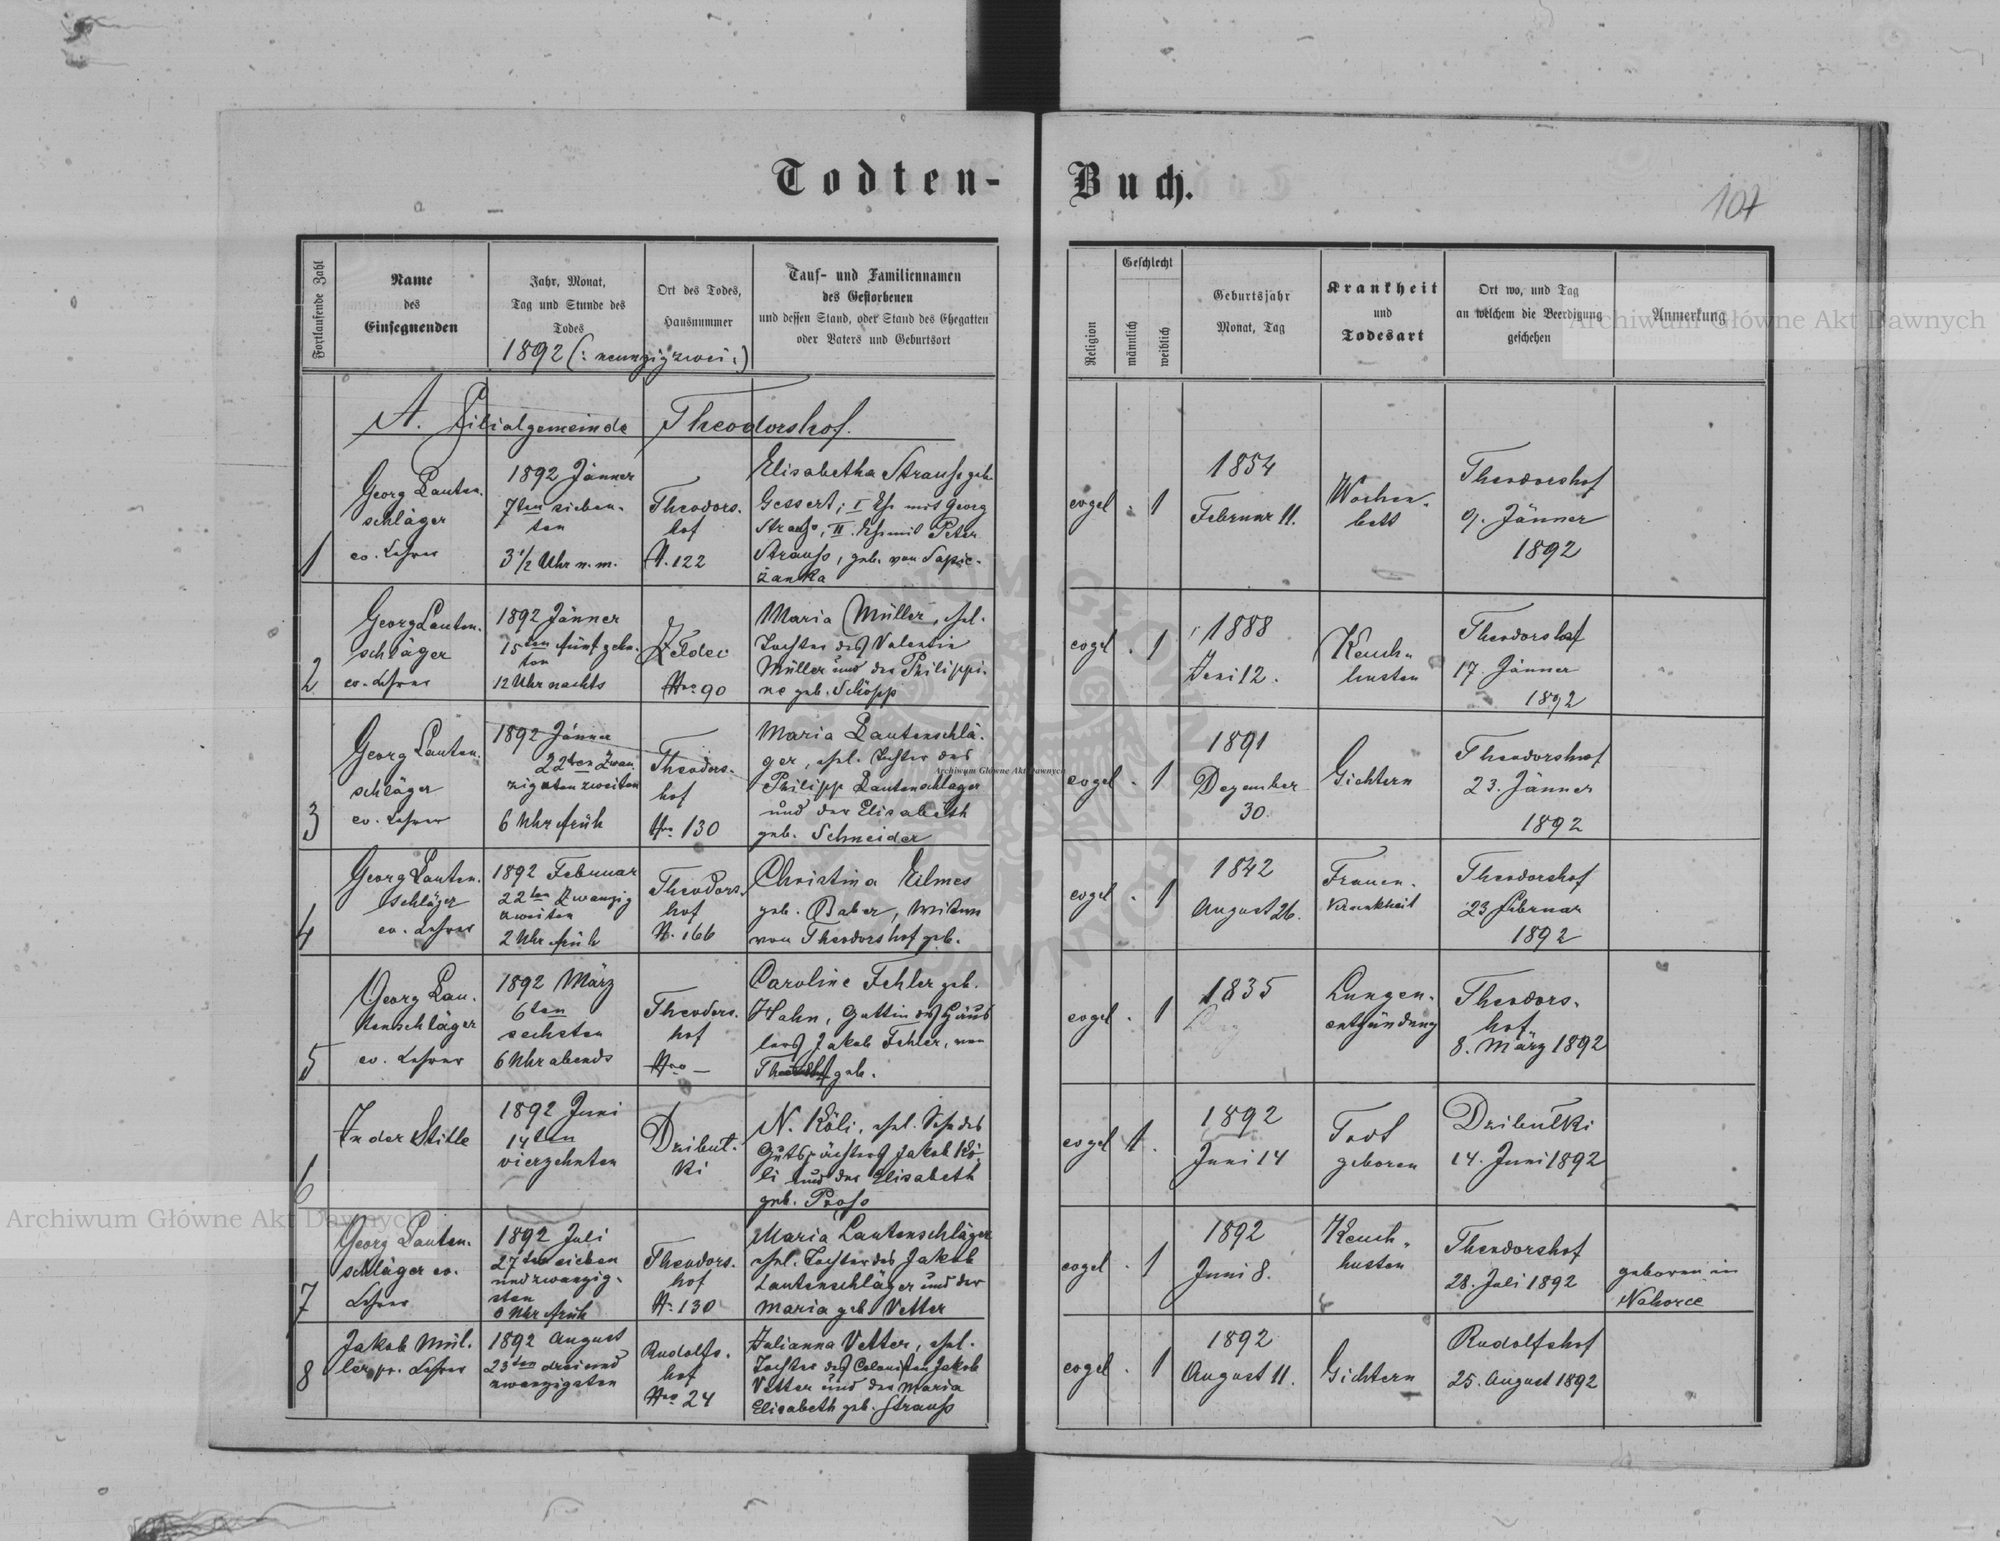 Todten-
Buch.
107
Fortlaufende Zahl
Name
des
Einsegnenden
Jahr, Monat,
Tag und Stunde des
Todes
1892 (: neunzigzwei :)
Ort des Todes,
Hausnummer
Tauf- und Familiennamen
des Gestorbenen
und dessen Stand, oder Stand des Ehegatten
oder Vaters und Geburtsort
Religion
Geschlecht
männlich
weiblich
Geburtsjahr
Monat, Tag
Krankheit
und
Todesart
Ort wo, und Tag
an welchem die Beerdigung
geschehen
Anmerkung
A. Filialgemeinde Theodorshof.
1
Georg Lauten-
schläger
ev. Lehrer
1892 Jänner
7ten sieben-
ten
3 1/2 Uhr n. m.
Theodors-
hof
N. 122
Elisabetha Strauss geb.
Gessert; I Ehe mit Georg
Strauss, II. Ehe mit Peter
Strauss, geb. von Sapie-
żanka
evgel
. 1
1854
Februar 11.
Wochen-
bett
Theodorshof
9. Jänner
1892
2
Georg Lauten-
schläger
ev. Lehrer
1892 Jänner
15ten fünfzehn-
ten
12 Uhr nachts
Żeldec
Nro 90
Maria Müller, ehel.
Tochter des Valentin
Müller und der Philippi-
ne geb. Schöpp
evgel
. 1
1888
Juni 12.
Keuch-
husten
Theodorshof
17. Jänner
1892
3
Georg Lauten-
schläger
ev. Lehrer
1892 Jänner
22ten Zwan-
zigsten zweiten
6 Uhr früh
Theodors-
hof
Nro 130
Maria Lautenschlä-
ger, ehel. Tochter des
Philipp Lautenschläger
und der Elisabeth
geb. Schneider
evgel
. 1
1891
Dezember
30.
Gichtern
Theodorshof
23. Jänner
1892
4
Georg Lauten-
schläger
ev. Lehrer
1892 Februar
22ten Zwanzig
zweiten
2 Uhr früh
Theodors-
hof
N. 166
Christina Kilmes
geb. Baber, Witwe
von Theodorshof geb.
evgel
. 1
1842
August 26.
Frauen-
krankheit
Theodorshof
23 Februar
1892
5
Georg Lau-
tenschläger
ev. Lehrer
1892 März
6ten
sechsten
6 Uhr abends
Theodors-
hof
Nro —
Caroline Fehler geb.
Hahn, Gattin des Häus
lers Jakob Fehler, von
geb.
evgel
. 1
1835
Lungen-
entzündung
Theodors-
hof
8. März 1892
6
In der Stille
1892 Juni
14ten
vierzehnten
Dzibuł-
ki
N. Köli, ehel. Sohn des
Gutspächters Jakob Kö-
li und der Elisabeth
geb. Pross
evgel
1 .
1892
Juni 14
Todt
geboren
Dzibułki
14. Juni 1892
7
Georg Lauten-
schläger ev.
Lehrer
1892 Juli
27ten sieben
undzwanzig-
sten
Uhr früh
Theodors-
hof
N. 130
Maria Lautenschläger
ehel. Tochter des Jakob
Lautenschläger und der
Maria geb Vetter
evgel
. 1
1892
Juni 8.
Keuch-
husten
Theodorshof
28. Juli 1892
geboren in
Nahorce
8
Jakob Mül-
ler pr. Lehrer
1892 August
23ten dreiund
zwanzigsten
Rudolfs-
hof
Nro 24
Julianna Vetter, ehel.
Tochter des Colonisten Jakob
Vetter und der Maria
Elisabeth geb. Strauss
evgel
. 1
1892
August 11.
Gichtern
Rudolfshof
25. August 1892
Archiwum Główne Akt Dawnych
Archiwum Główne Akt Dawnych
Archiwum Główne Akt Dawnych